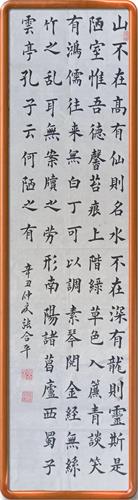 山不在高有仙則名水不在深有龍則靈斯是
陋室惟吾德馨苔痕上階綠草色入簾青談笑
有鴻儒往來無白丁可以調素琴閱金經無絲
竹之亂耳無案牘之勞形南陽諸葛廬西蜀子
雲亭孔子云何陋之有
辛丑仲張合平